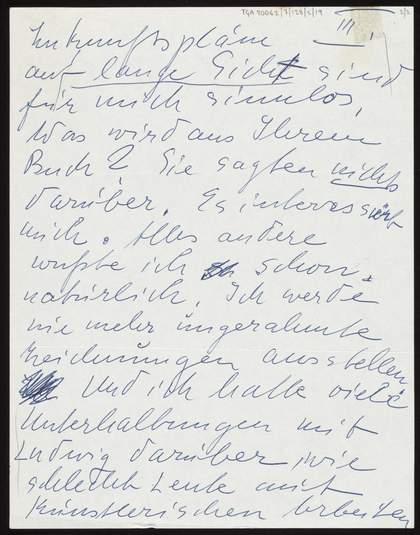 TGA 20062/3/128/2/19 2/2
III,
Zukunftspläne
auf lange Sicht sind
für mich sinnlos,
Was wird aus Ihrem
Buch? Sie sagten nichts
darüber. Es interessiert
mich. Alles andere
wußte ich schon.
natürlich. Ich werde
nie mehr ungerahmte
Zeichnungen ausstellen
Und ich hatte viele
Unterhaltungen mit
Ludwig darüber, wie
schlecht Leute mit
künstlerischen Arbeiten